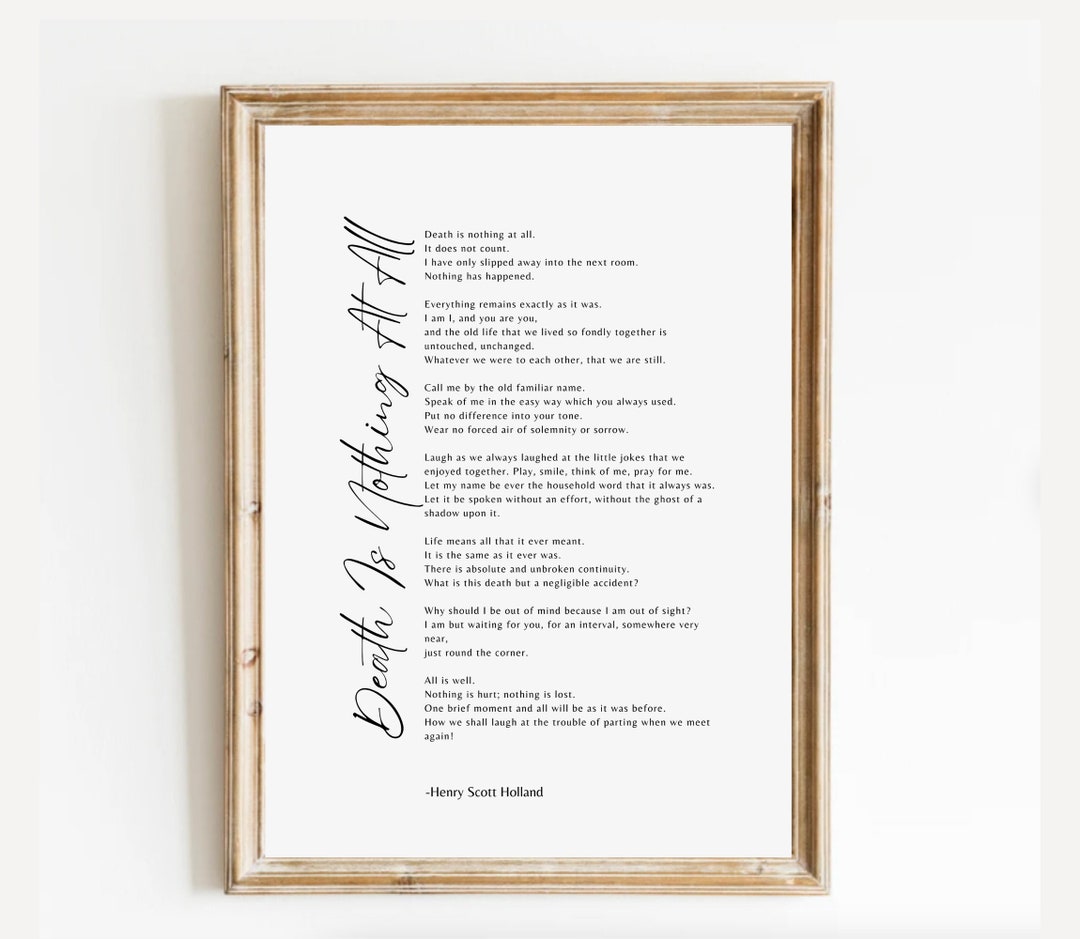 Death Is Nothing At All
Death is nothing at all.
It does not count.
I have only slipped away into the next room.
Nothing has happened.
Everything remains exactly as it was.
I am I, and you are you,
and the old life that we lived so fondly together is
untouched, unchanged.
Whatever we were to each other, that we are still.
Call me by the old familiar name.
Speak of me in the easy way which you always used.
Put no difference into your tone.
Wear no forced air of solemnity or sorrow.
Laugh as we always laughed at the little jokes that we
enjoyed together. Play, smile, think of me, pray for me.
Let my name be ever the household word that it always was.
Let it be spoken without an effort, without the ghost of a
shadow upon it.
Life means all that it ever meant.
It is the same as it ever was.
There is absolute and unbroken continuity.
What is this death but a negligible accident?
Why should I be out of mind because I am out of sight?
I am but waiting for you, for an interval, somewhere very
near,
just round the corner.
All is well.
Nothing is hurt; nothing is lost.
One brief moment and all will be as it was before.
How we shall laugh at the trouble of parting when we meet
again!
-Henry Scott Holland